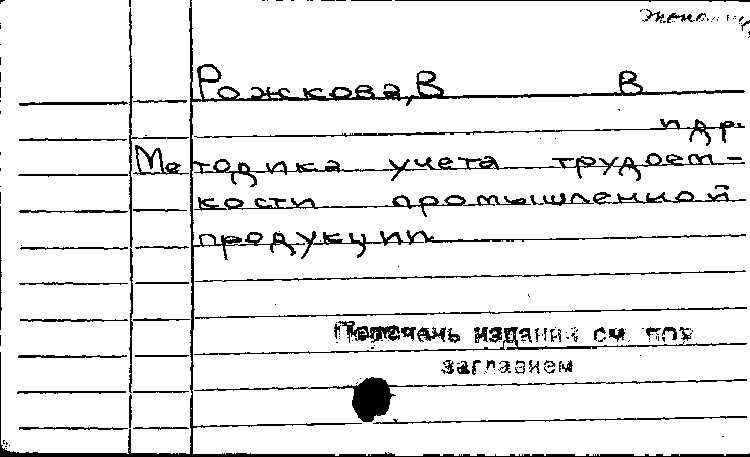 Рожкова, В В
и др.
Методика учета трудоем-
кости промышленной
продукции.
Перечень издания см. под
заглавием